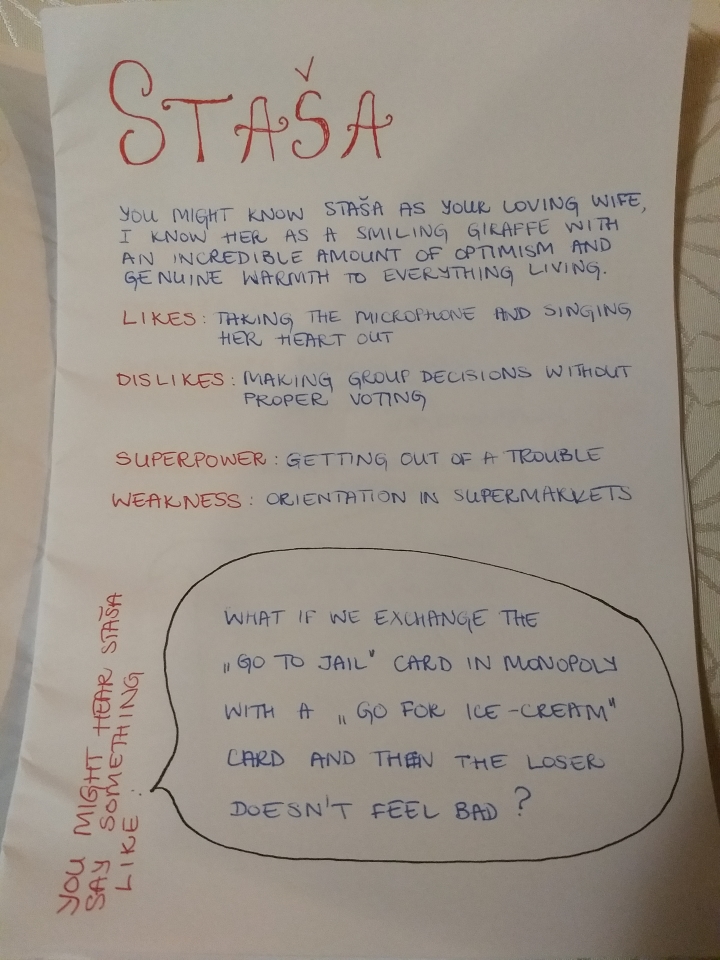 STAŠA
YOU MIGHT KNOW STAŠA AS YOUR LOVING WIFE,
I KNOW HER AS A SMILING GIRAFFE WITH
AN INCREDIBLE AMOUNT OF OPTIMISM AND
GENUINE WARMTH TO EVERYTHING LIVING.
LIKES: TAKING THE MICROPHONE AND SINGING
HER HEART OUT
DISLIKES: MAKING GROUP DECISIONS WITHOUT
PROPER VOTING
SUPERPOWER: GETTING OUT OF A TROUBLE
WEAKNESS: ORIENTATION IN SUPERMARKETS
YOU MIGHT HEAR STAŠA
SAY SOMETHING
LIKE:
WHAT IF WE EXCHANGE THE
„GO TO JAIL" CARD IN MONOPOLY
WITH A „GO FOR ICE-CREAM"
CARD AND THEN THE LOSER
DOESN'T FEEL BAD?